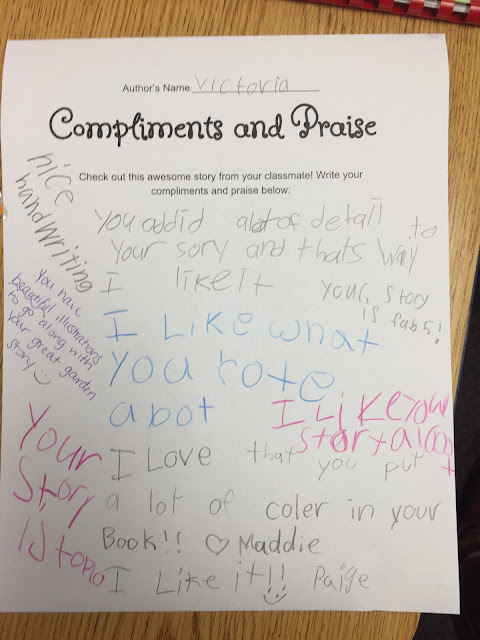 Author's Name: Victoria
Compliments and Praise
Check out this awesome story from your classmate! Write your
compliments and praise below:
nice
handwriting
You addid alot of detail to
your sory and thats way
I likeIt
your story
is fab 5!
You have
beautiful illustrations
to go along with
your great garden
story
I Like what
you rote
abot
I Like your
story alooot
Your
Story
IS topio
I Love that you put
a lot of coler in your
Book!! ♡ Maddie
I Like it!! Paige